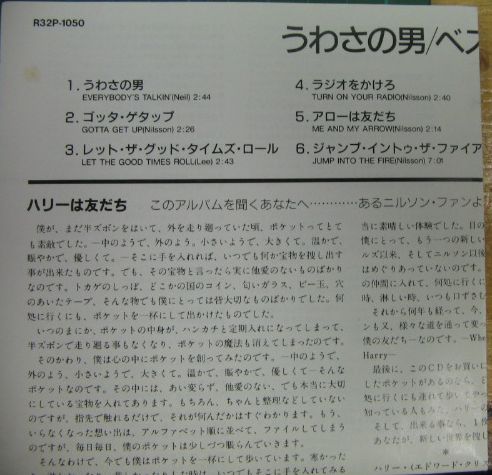 R32P-1050
うわさの男/ベス
1. うわさの男
EVERYBODY'S TALKIN'(Neil) 2:44
2. ゴッタ・ゲタップ
GOTTA GET UP(Nilsson) 2:26
3. レット・ザ・グッド・タイムズ・ロール
LET THE GOOD TIMES ROLL(Lee) 2:43
4. ラジオをかけろ
TURN ON YOUR RADIO(Nilsson) 2:40
5. アローは友だち
ME AND MY ARROW(Nilsson) 2:14
6. ジャンプ・イントゥ・ザ・ファイア
JUMP INTO THE FIRE(Nilsson) 7:01
ハリーは友だち このアルバムを聞くあなたへ…………あるニルソン・ファンよ
僕が、まだ半ズボンをはいて、外を走り廻っていた頃、ポケットってとて
も素敵でした。一中のようで、外のよう。小さいようで、大きくて。温かで、
賑やかで、優しくて。一そこに手を入れれば、いつでも何か宝物を捜し出す
事が出来たものです。でも、その宝物と言ったら実に他愛のないものばかり
なのです。トカゲのしっぽ、どこかの国のコイン、匂いガラス、ビー玉、穴
のあいたテープ、そんな物でも僕にとっては皆大切なものばかりでした。何
処に行くにも、ポケットを一杯にして出かけたものでした。
いつのまにか、ポケットの中身が、ハンカチと定期入れになってしまって、
半ズボンで走り廻る事もなくなり、ポケットの魔法も消えてしまったのです。
そのかわり、僕は心の中にポケットを創ってみたのです。一中のようで、
外のよう、小さいようで、大きくて。温かで、賑やかで、優しくて一そん
なポケットなのです。その中には、あい変らず、他愛のない、でも本当に大切
にしている宝物を入れてあります。もちろん、ちゃんと整理などしていない
のですが、指先で触れるだけで、それが何んだかはすぐわかります。もう、
いらなくなった想い出は、アルファベット順に並べて、ファイルしてしまう
のですが、毎日毎日、僕のポケットは少しづつ賑らんでいきます。
そんなわけで、今でも僕はポケットを一杯にして歩いています。寒かった
当に素晴しい体験でした。目の
僕にとって、もう一つの新しい
ルズ以来、そしてニルソン以後
はめぐりあっていないのです。
の仲間に入れて、何処に行くに
時、淋しい時、いつも口ずさむ
それから何年も経って、今、
ンも又、様々な道を通って変っ
僕の友だち一なのです。—Whe
Harry—
最後に、このCDをお買いに
したポケットがあるのなら、ど
知っている人もみん、ハリーの
そして、出来る事なら、1
あなたが、新しい世界を捜し
*
ハリー・(エドワード・クリス